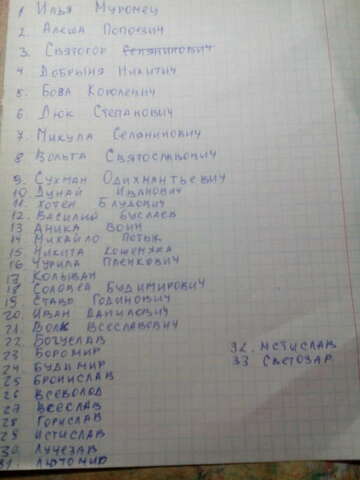 1. Илья Муромец
2. Алеша Попович
3. Святогор
4 Добрыня Никитич
5. Бова Королевич
6. Дюк Степанович
7. Микула Селянинович
8. Вольга Святославович
9. Сухман Одихмантьевич
10. Дунай Иванович
11. Хотен Блудович
12. Василий Буслаев
13 Аника Воин
14. Михайло Потык
15. Никита Кожемяка
16. Чурила Пленкович
17. Колыван
18 Соловей Будимирович
19. Ставр Годинович
20. Иван Данилович
21. Волх Всеславович
22. Богуслав
23 Боромир
24 Будимир
25 Бронислав
26 Всеволод
27 Всеслав
28 Горислав
29 Истислав
30 Лучезар
31. Лютомир
32. Мстислав
33 Светозар